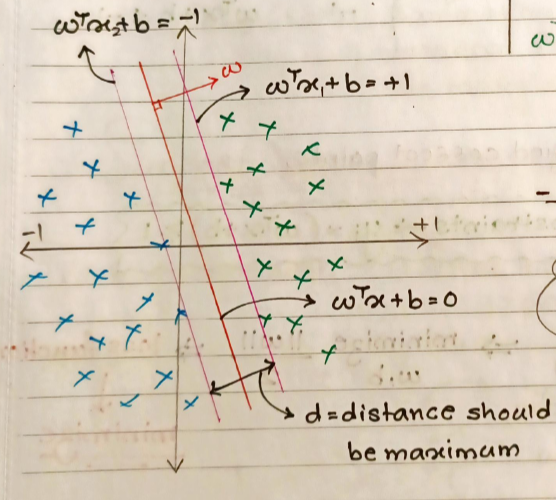 ωᵀx₂+b = -1
ω
ω
ωᵀx₁+b = +1
-1
+1
ωᵀx+b=0
d=distance should
be maximum